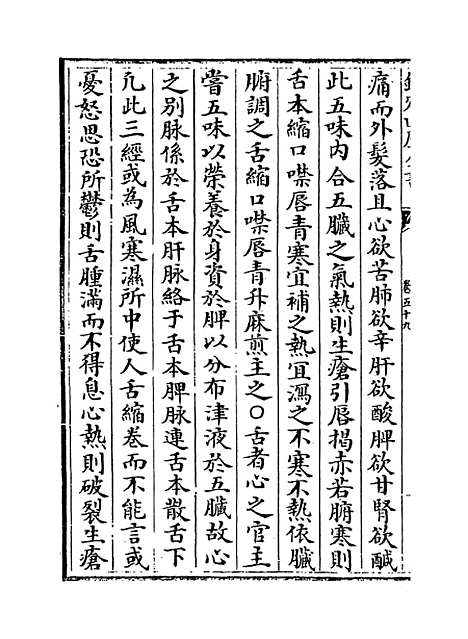 痛而外髮落且心欲苦肺欲辛肝欲酸脾欲甘腎欲鹹
此五味内合五臟之氣熱則生瘡引唇揭赤若腑寒則
舌本縮口噤唇青寒宜補之熱宜瀉之不寒不熱依臟
腑調之舌縮口噤唇青升麻煎主之○舌者心之官主
嘗五味以榮養於身資於脾以分布津液於五臟故心
之别脉係於舌本肝脉絡于舌本脾脉連舌本散舌下
凢此三經或為風寒濕所中使人舌縮卷而不能言或
憂怒思恐所鬱則舌腫滿而不得息心熱則破裂生瘡
卷五十九